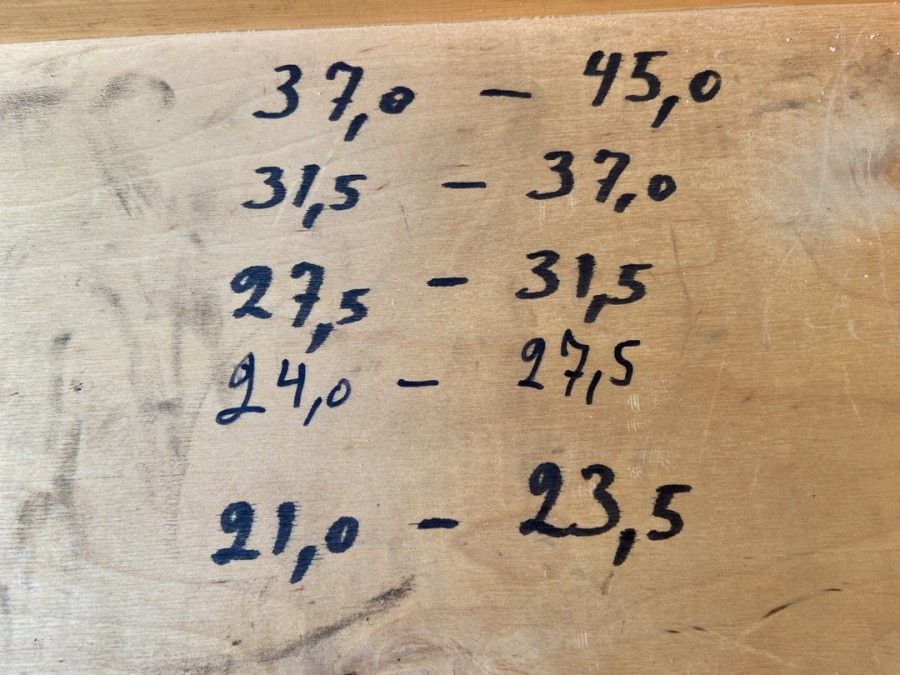 37,0 - 45,0
31,5 - 37,0
27,5 - 31,5
24,0 - 27,5
21,0 - 23,5